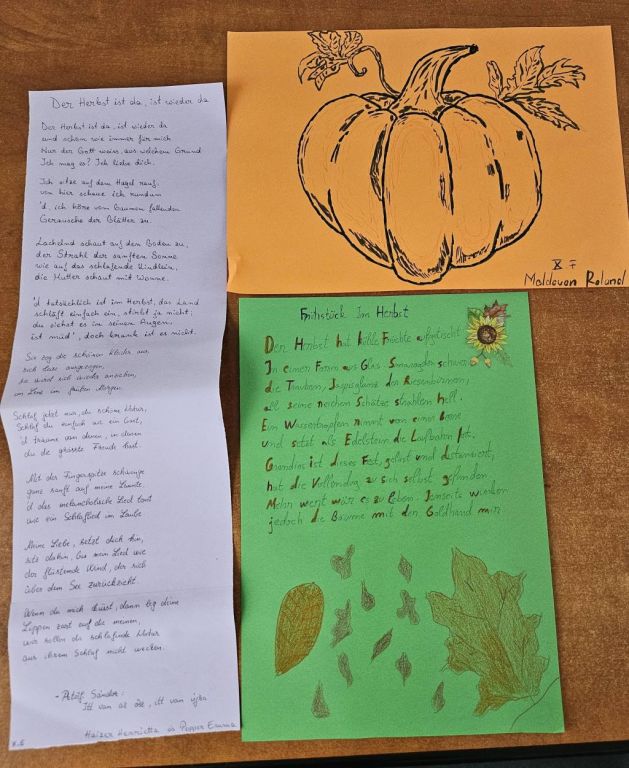 Der Herbst ist da, ist wieder da
Der Herbst ist da, ist wieder da
und schön wie immer für mich
Nur der Gott weiss, aus welchem Grund
Ich mag es? Ich liebe dich.
Ich sitze auf dem Hügel rauf,
von hier schaue ich rundum
'd, ich höre vom Bäumen fallenden
Geräusche der Blätter zu.
Lächelnd schaut auf den Boden zu,
der Strahl der sanften Sonne
wie auf das schlafende Kindlein,
die Mutter schaut mit Wonne.
'd tatsächlich ist im Herbst, das Land
schläft einfach ein, stirbt ja nicht,
du siehst es in seinen Augen,
ist müd', doch krank ist es nicht.
Sie zog die schönen Kleider aus,
sich leise ausgezogen,
sie wird sich wieder anziehen,
im Lenz im frühen Morgen.
Schlaf jetzt nur, du schöne Natur,
Schlaf du einfach wie ein Gast,
'd träume von denen, in denen
du die grösste Freude hast.
Mit der Fingerspitze
ganz sanft auf meine Laute.
'd das melancholische Lied tönt
wie ein Schlaflied im Laube
Meine Liebe, setzt dich hin,
sitz dahin, bis mein Lied wie
der flüsternde Wind, der sich
über dem See zurückzieht.
Wenn du mich küsst, dann leg deine
Lippen zart auf die meinen,
wir sollen die schlafende Natur
aus ihrem Schlaf nicht wecken.
- Petőfi Sándor:
Itt van az ősz, itt van újra
Haizer Henrietta és Popper Emma
X. E
X F
Moldovan Roland
Frühstück Im Herbst
Der Herbst hat kühle Früchte aufgetischt
In einem Ferien aus Glas. Smaragden schwer
die Trauben, Jaspisglanz der Riesenbirnen,
all seine reichen Schätze strahlen hell.
Ein Wassertropfen nimmt von einer Beere
und setzt als Edelstein die Laufbahn fort.
Grandios ist dieses Fest, gelöst und distanziert,
hat die Vollendng zu sich selbst gefunden.
Mehr wert wär es zu leben. Jenseits winken
jedoch die Bäume mit den Goldhand mir.